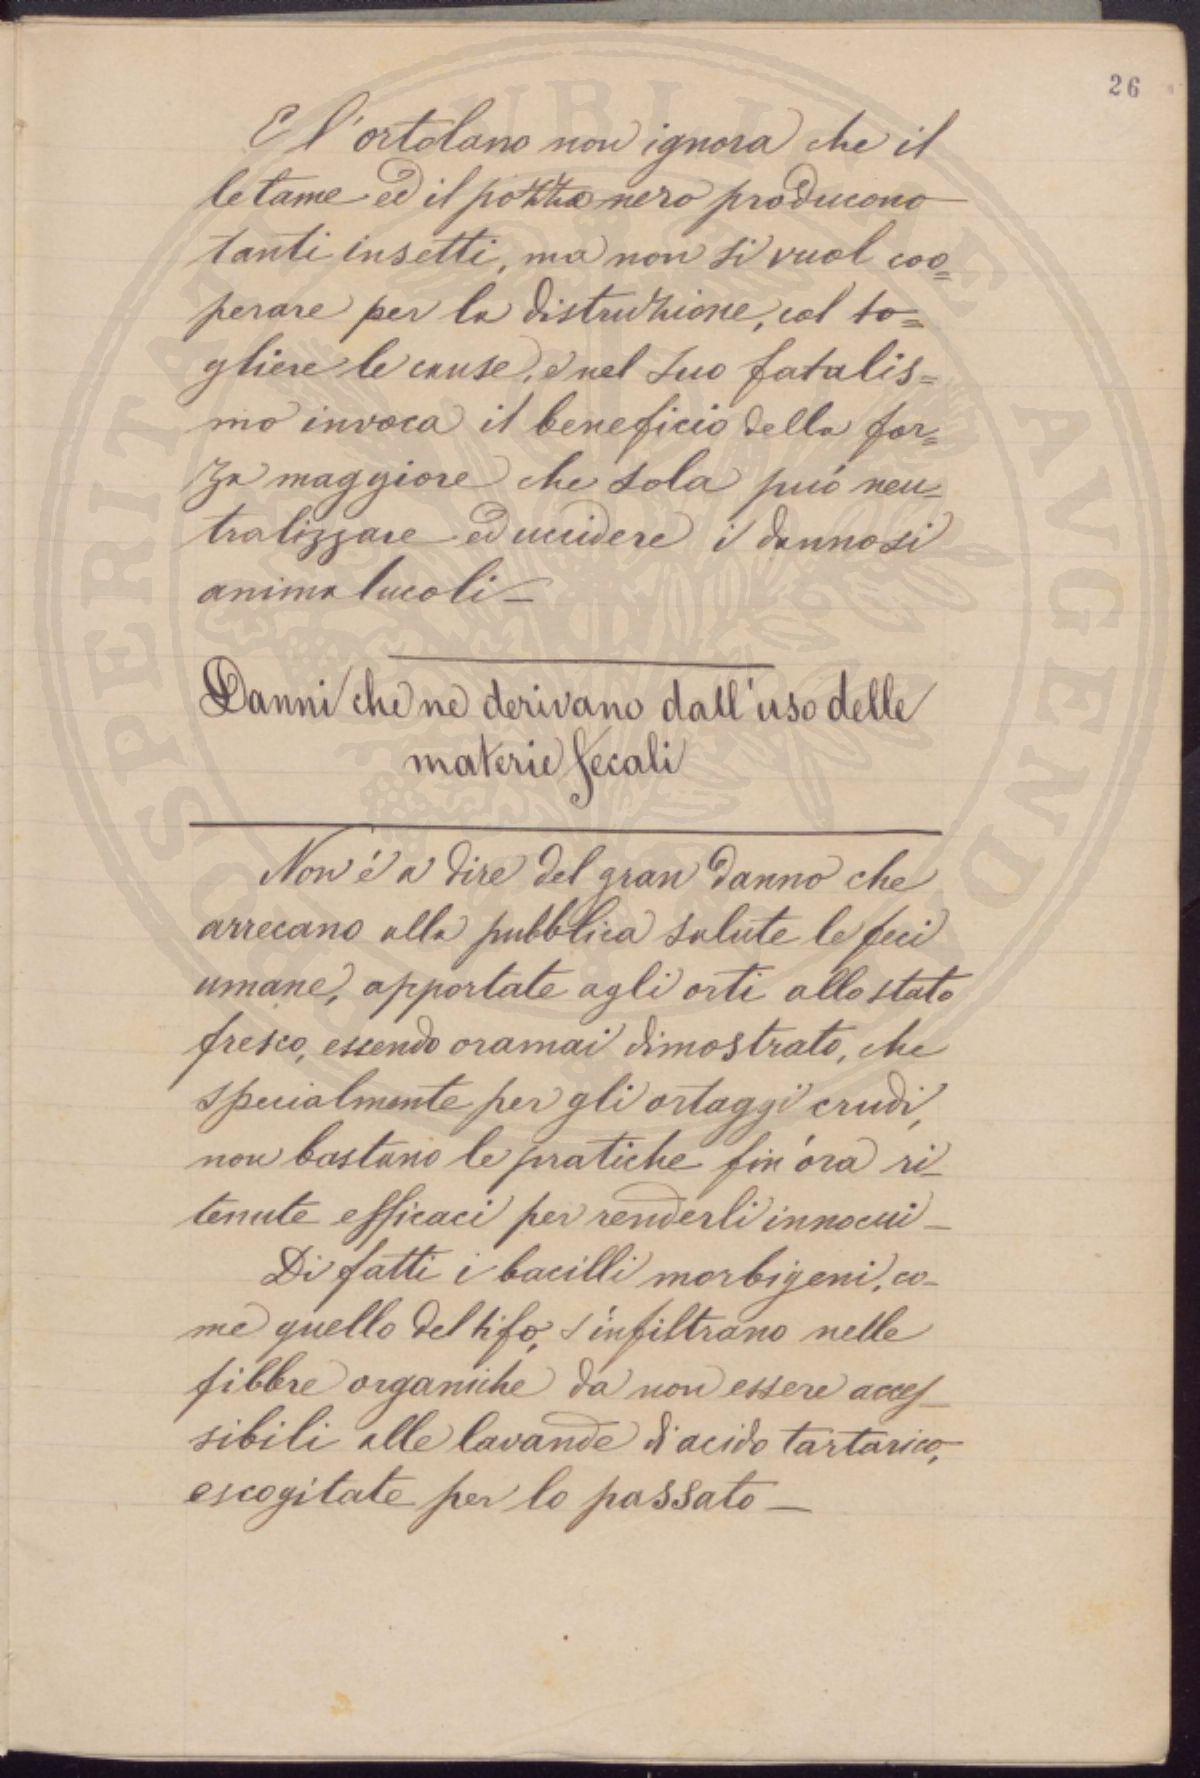 26
E l'ortolano non ignora che il
letame ed il pozzo nero producono
tanti insetti, ma non si vuol coo=
perare per la distruzione, col to=
gliere le cause, e nel suo fatalis=
mo invoca il beneficio della for=
za maggiore che sola può neu=
tralizzare ed uccidere i dannosi
animalucoli_
Danni che ne derivano dall'uso delle
materie fecali
Non é a dire del gran danno che
arrecano alla pubblica salute le feci
umane, apportate agli orti allo stato
fresco, essendo oramai dimostrato, che
specialmente per gli ortaggi crudi,
non bastano le pratiche fin'ora ri_
tenute efficaci per renderli innocui_
Di fatti i bacilli morbigeni, co_
me quello del tifo, s'infiltrano nelle
fibbre organiche da non essere acces_
sibili alle lavande di acido tartarico,
escogitate per lo passato_
PROSPERITATI PUBLICAE AVGENDAE